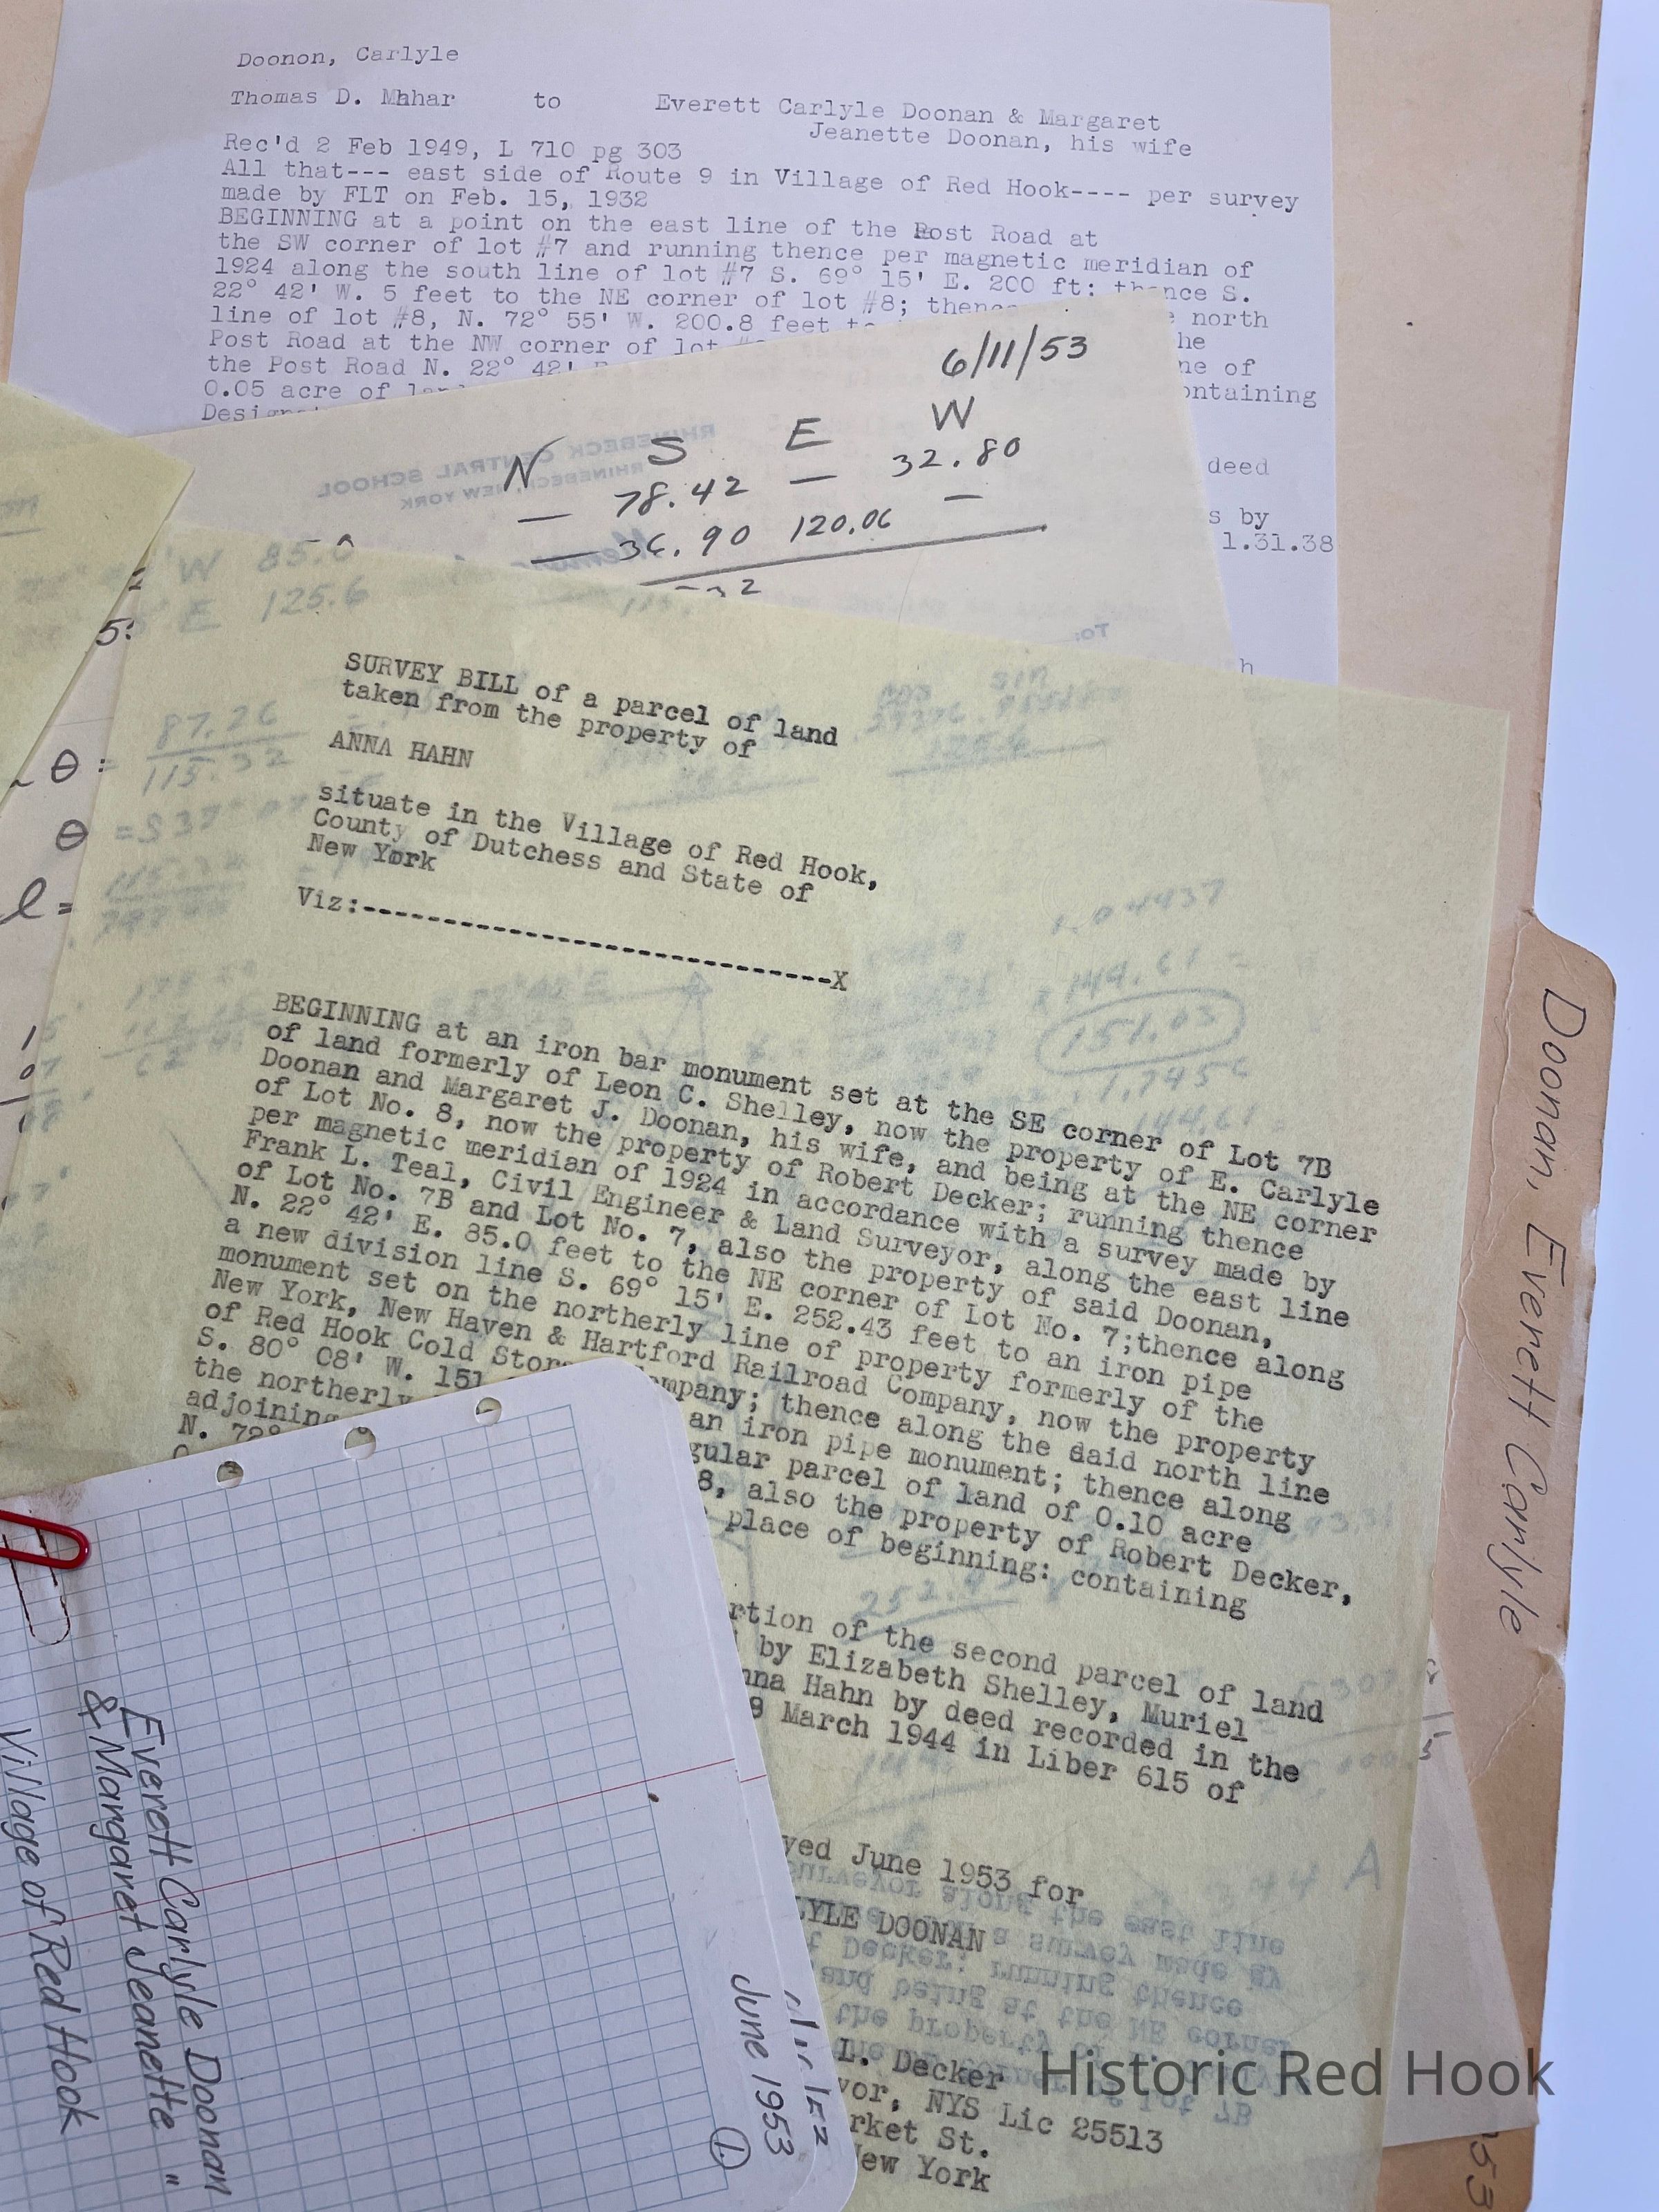 Doonon, Carlyle
Thomas D. Mhhar to Everett Carlyle Doonan & Margaret
Jeanette Doonan, his wife
Rec'd 2 Feb 1949, L 710 pg 303
All that--- east side of Route 9 in Village of Red Hook---- per survey
made by FLT on Feb. 15, 1932
BEGINNING at a point on the east line of the Post Road at
the SW corner of lot #7 and running thence per magnetic meridian of
1924 along the south line of lot #7 S. 69° 15' E. 200 ft; thence S.
22° 42' W. 5 feet to the NE corner of lot #8; thence north
line of lot #8, N. 72° 55' W. 200.8 feet
Post Road at the NW corner of lot
the Post Road N. 22° 42' of
0.05 acre of containing
deed
s by
1.31.38
h
6/11/53
N S E W
— 78.42 — 32.80
— 36.90 120.06 —
RHINEBECK CENTRAL SCHOOL
RHINEBECK, NEW YORK
To:
W 85.0
E 125.6
5:
θ = 87.26
115.32
θ = S 37°
l =
SURVEY BILL of a parcel of land
taken from the property of
ANNA HAHN
situate in the Village of Red Hook,
County of Dutchess and State of
New York
Viz:------------------------------X
1.04437
144.61
151.03
1.7456
144.61
BEGINNING at an iron bar monument set at the SE corner of Lot 7B
of land formerly of Leon C. Shelley, now the property of E. Carlyle
Doonan and Margaret J. Doonan, his wife, and being at the NE corner
of Lot No. 8, now the property of Robert Decker; running thence
per magnetic meridian of 1924 in accordance with a survey made by
Frank L. Teal, Civil Engineer & Land Surveyor, along the east line
of Lot No. 7B and Lot No. 7, also the property of said Doonan,
N. 22° 42' E. 85.0 feet to the NE corner of Lot No. 7;thence along
a new division line S. 69° 15' E. 252.43 feet to an iron pipe
monument set on the northerly line of property formerly of the
New York, New Haven & Hartford Railroad Company, now the property
of Red Hook Cold Stor mpany; thence along the daid north line
S. 80° 08' W. 151 an iron pipe monument; thence along
the northerly gular parcel of land of 0.10 acre
adjoining 8, also the property of Robert Decker,
N. 72° place of beginning: containing
rtion of the second parcel of land
by Elizabeth Shelley, Muriel
nna Hahn by deed recorded in the
9 March 1944 in Liber 615 of
yed June 1953 for
LYLE DOONAN
L. Decker
vor, NYS Lic 25513
rket St.
New York
44 A
Doonan, Everett Carlyle
53
Everett Carlyle Doonan
& Margaret Jeanette "
Village of Red Hook
June 1953
1
Historic Red Hook